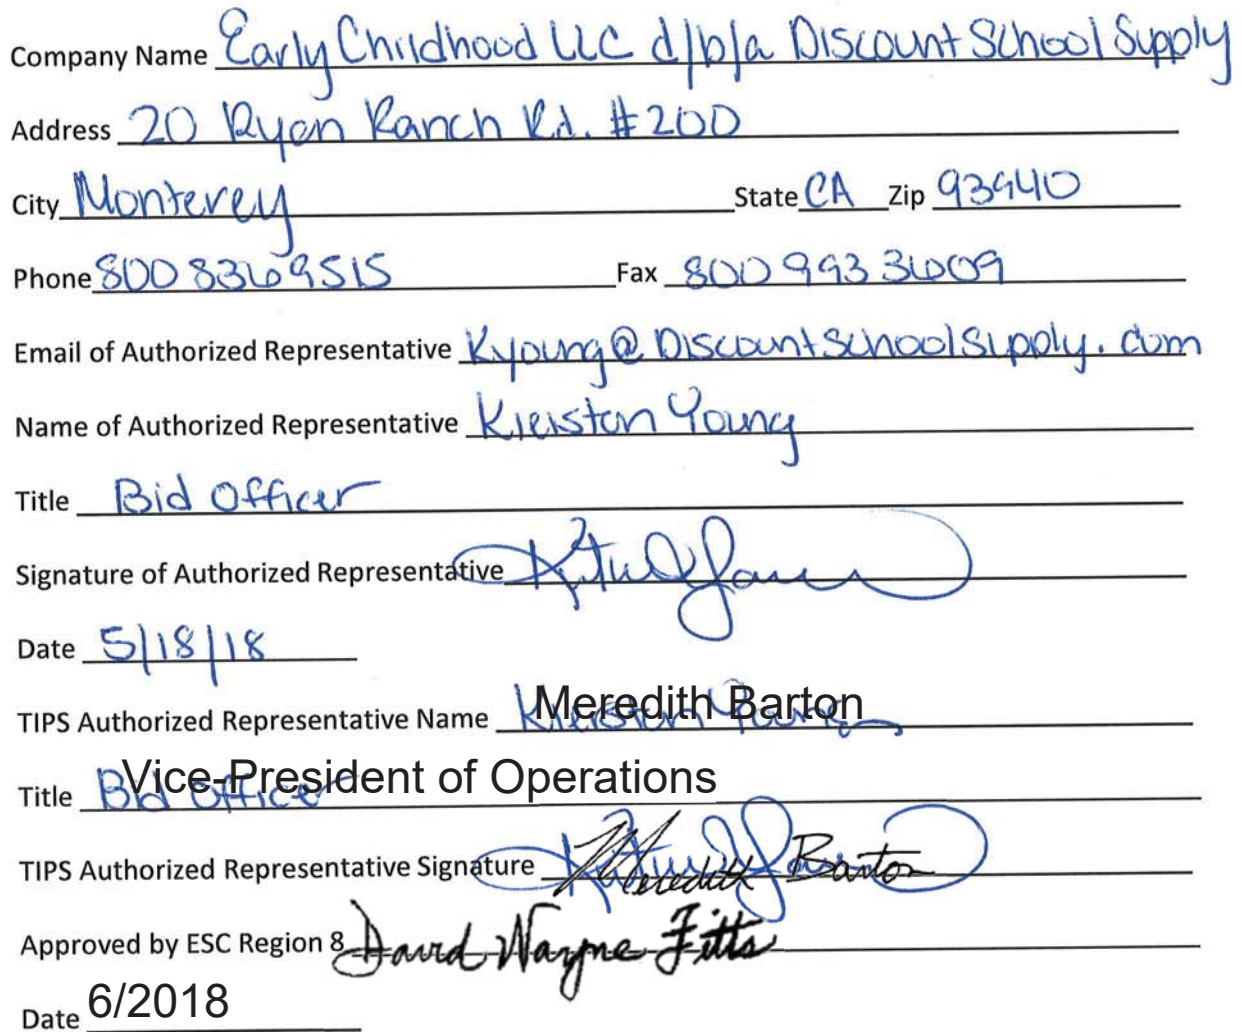 Company Name Early Childhood LLC d/b/a Discount School Supply
Address 20 Ryan Ranch Rd. #200
City Monterey State CA Zip 93940
Phone 800 836 9515 Fax 800 993 3609
Email of Authorized Representative Kyoung@DiscountSchoolSupply.com
Name of Authorized Representative Kierston Young
Title Bid Officer
Signature of Authorized Representative
Date 5/18/18
TIPS Authorized Representative Name Meredith Barton
Title Vice-President of Operations
TIPS Authorized Representative Signature Meredith Barton
Approved by ESC Region 8 David Wayne Fitts
Date 6/2018